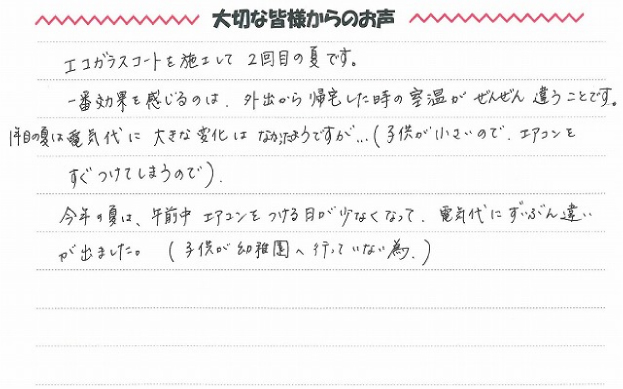 大切な皆様からのお声
エコガラスコートを施工して2回目の夏です。
一番効果を感じるのは、外出から帰宅した時の室温がぜんぜん違うことです。
1年目の夏は電気代に大きな変化はなかったようですが…(子供が小さいので、エアコンを
すぐつけてしまうので)。
今年の夏は、午前中エアコンをつける日が少なくなって、電気代にずいぶん違い
が出ました。(子供が幼稚園へ行っていない為。)